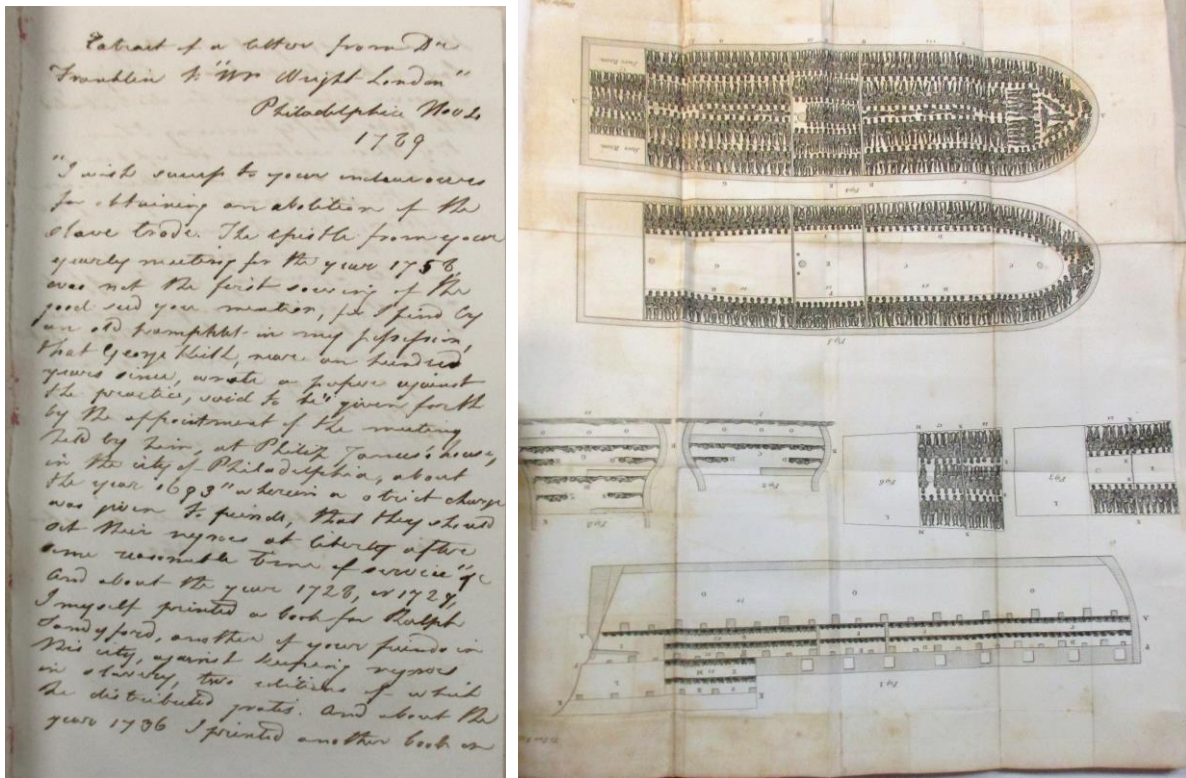 Extract of a letter from Dr
Franklin to "Mr Wright London"
Philadelphia Nov 4
1789
"I wish success to your endeavours
for obtaining an abolition of the
slave trade. The epistle from your
yearly meeting for the year 1758,
was not the first sowing of the
good seed you mention, for I find by
an old pamphlet in my possession,
that George Keith, near an hundred
years since, wrote a paper against
the practice, said to be "given forth
by the appointment of the meeting
held by him, at Philip James's house,
in the city of Philadelphia, about
the year 1693" wherein a strict charge
was given to friends, that they should
set their negroes at liberty after
some reasonable time of service" &c
And about the year 1728, or 1729,
I myself printed a book for Ralph
Sandyford, another of your friends in
this city, against keeping negroes
in slavery, two editions of which
he distributed gratis. And about the
year 1736 I printed another book on
Store Room
Store Room
Fig 4
Fig 5
Fig 3
Fig 2
Fig 6
Fig 7
Fig 1